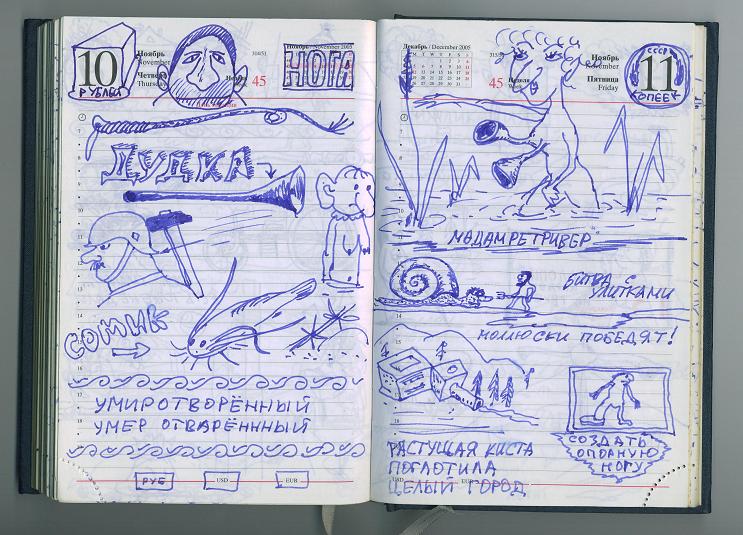 10
РУБЛЕЙ
Ноябрь
November
Четверг
Thursday
314/51
45
Ноябрь / November 2005
НОГА
ДУДКА
СОМИК
УМИРОТВОРЁННЫЙ
УМЕР ОТВАРЁНННЫЙ
РУБ
USD
EUR
Декабрь / December 2005
45
Неделя
Week
Ноябрь
November
Пятница
Friday
СССР
11
КОПЕЕК
МАДАМ РЕТРИВЕР
БИТВА С
УЛИТКАМИ
МОЛЮСКИ ПОБЕДЯТ!
РАСТУЩАЯ КИСТА
ПОГЛОТИЛА
ЦЕЛЫЙ ГОРОД
СОЗДАТЬ
ОПОРНУЮ
НОГУ